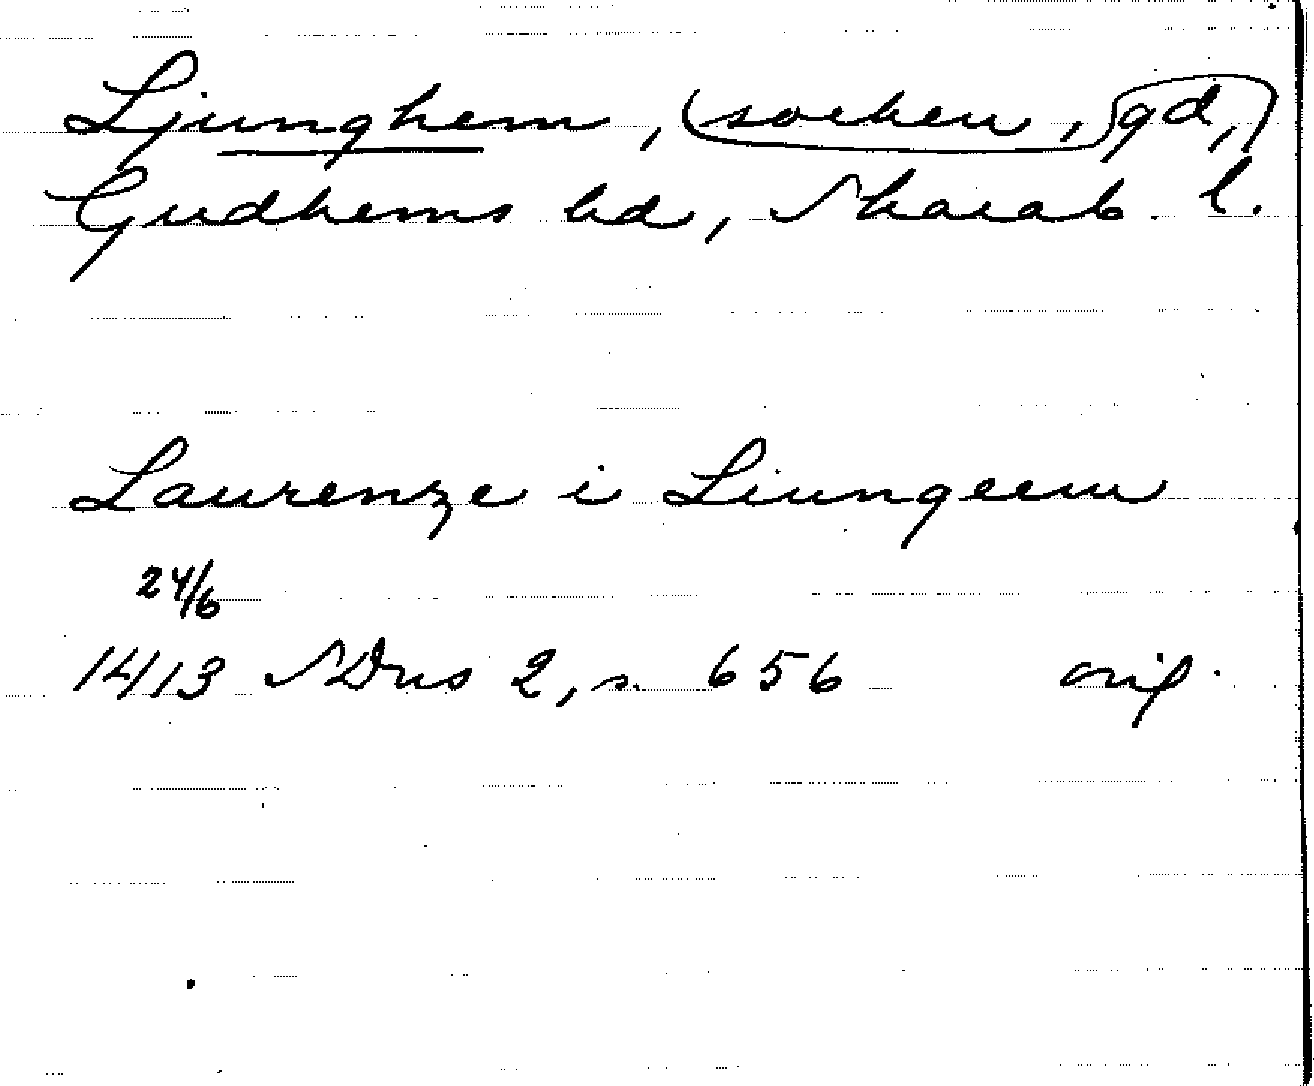 Ljunghem, (socken, gd,)
Gudhems hd, Skarab. l.
Laurenze i Liungeem
24/6
1413 SDns 2, s. 656 orig.